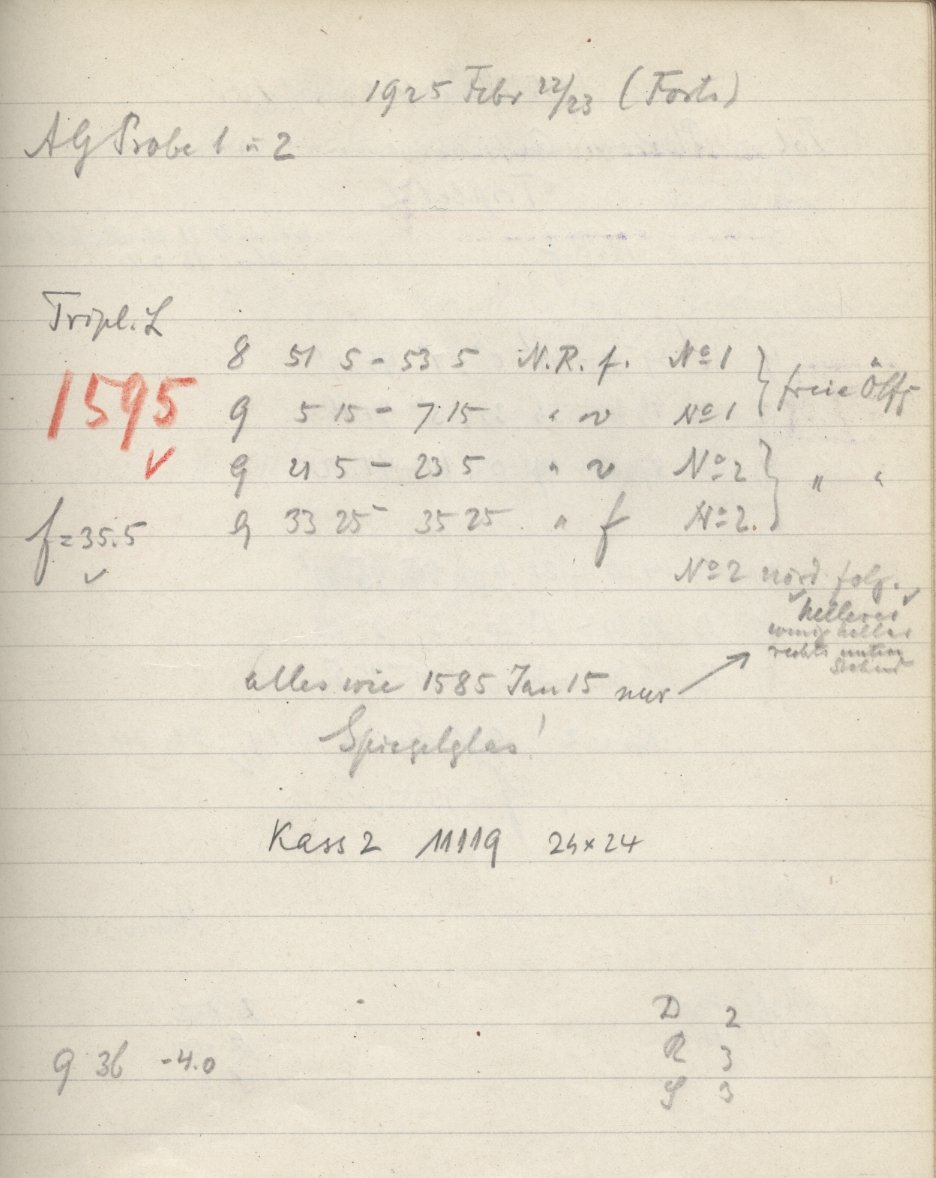 1925 Febr 22/23 (Forts)
AG Probe 1 u 2
Tripl. L
1595
f = 35.5
8 51 5 - 53 5 N.R. f. No 1 } freie Öffg
9 5 15 - 7 15 " v No 1
9 21 5 - 23 5 " v No 2 } " "
9 33 25 - 35 25 " f No 2.
No 2 nörd folg.
helleres
wenig helles
rechts unten
alles wie 1585 Jan 15 nur
Spiegelglas!
Kass 2 11119 24×24
D 2
R 3
S 3
9 36 -4.0